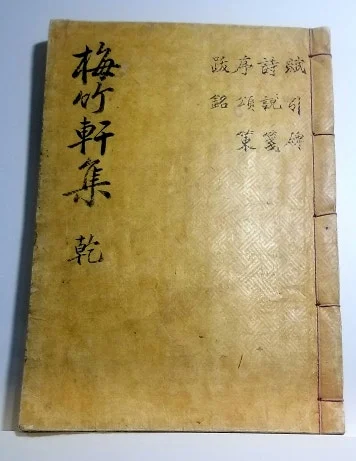 賦引碑
詩說箋
序頌策
跋銘
梅竹軒集 乾